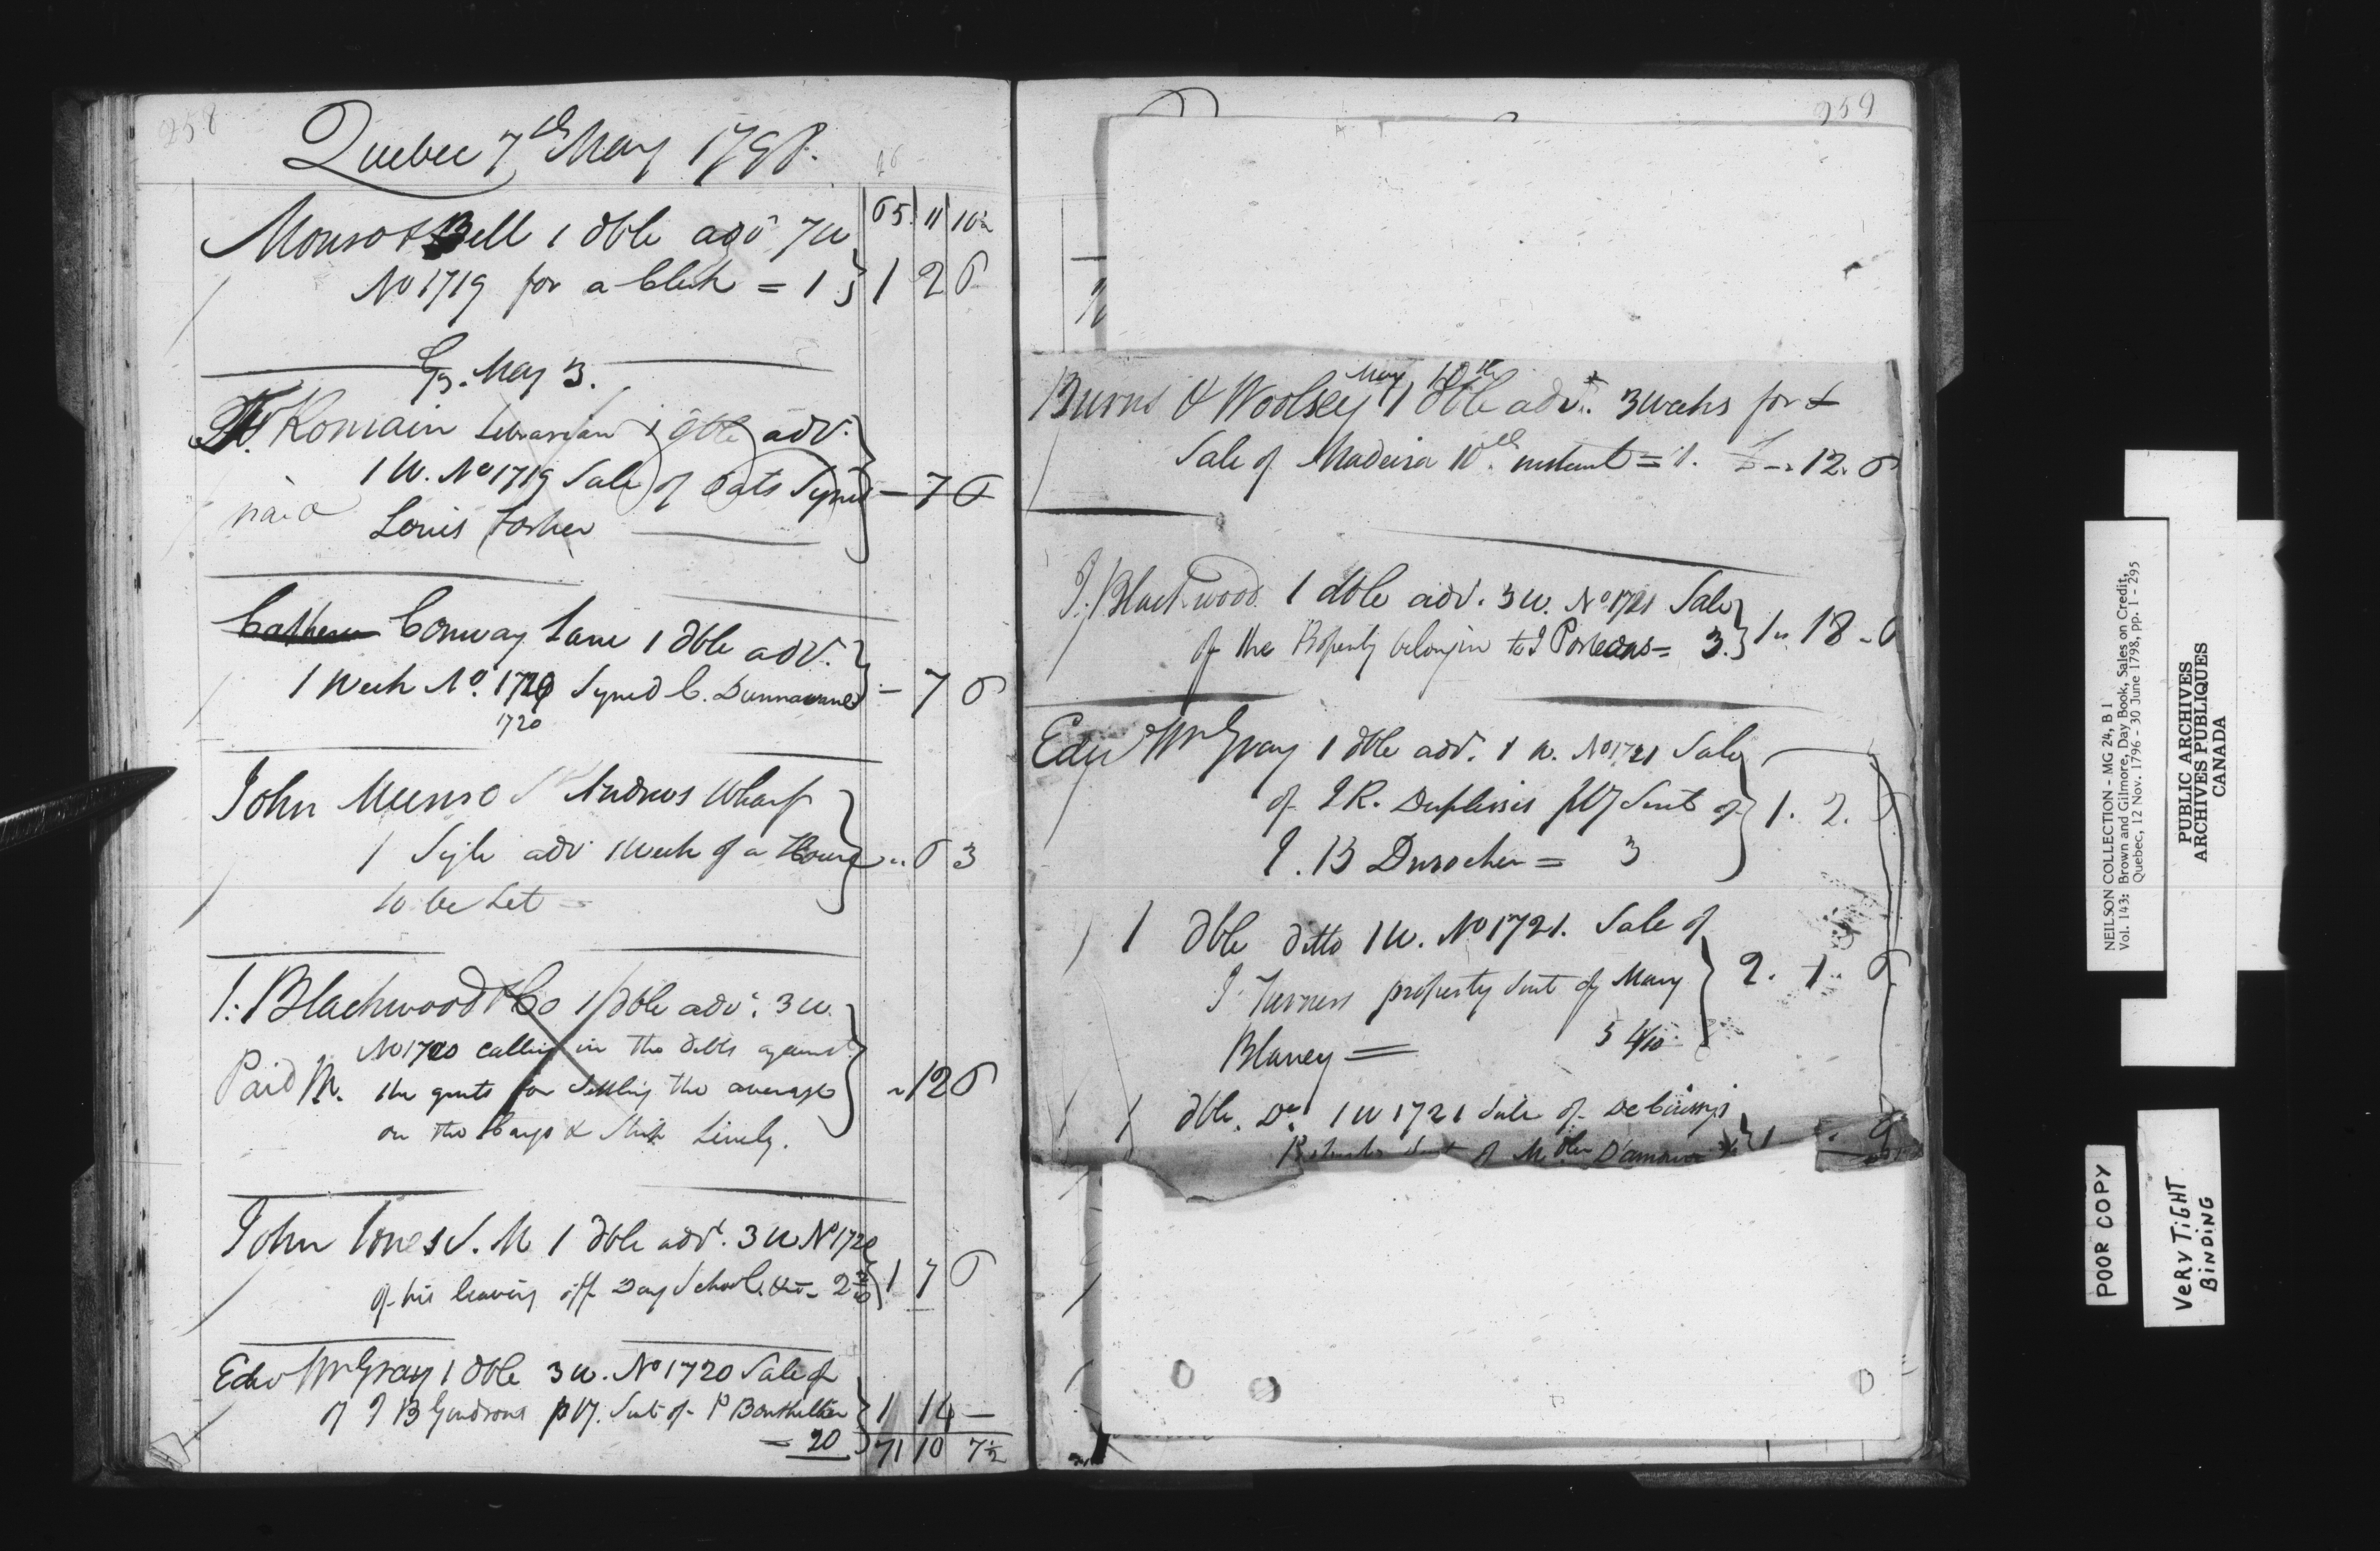 258
Quebec 7th May 1798.
65. 11 10½
Monro & Bell 1 dble adv 7 w
No 1719 for a Clerk = 1 } 1 2 6
Gz. May 3.
Fr. Romain Librarian 1 dble adv.
1 W. No 1719 Sale of Oats Syned — 7 6
paid Louis Forher
Cathern Conway Lane 1 dble adv.
1 Week No. 1719 Syned C. } - 7 6
1720
John Munro St Andrews Wharf
1 Sigle adv 1 Week of a House } .. 6 3
to be Let =
J. Blackwood & Co 1 dble adv. 3 w.
No 1720 calling in the debts against
Paid the for Settling the average } ~ 12 6
on the Cargo & Ship Lively.
John Jones S. M 1 dble advt. 3 w No 1720
of his leaving off Day School &c = 2 } 1 7 6
Edw Wm Gray 1 dble 3 w. No 1720 Sale of
of J B Gendrons p ty. Suit of P } 1 14 —
= 20 } 71 10 7½
259
May 10th
Burns & Woolsey 1 dble advt. 3 weeks for
Sale of Madeira 10th instant = 1. £ - 12. 6
J. Blackwood 1 dble adv. 3 w. No 1721 Sale
of the Property belongin to J Porteous = 3. } 1 .. 18 - 6
Edw Wm Gray 1 dble adv. 1 w. No 1721 Sale
of J R. Duplessis pty Suit of } 1. 2. 6
J. B Durocher = 3
1 dble ditto 1 W. No 1721. Sale of
J. Turners property Suit of Mary } 2. 1. 6
Blaney = 5 4/10
1 dble. Do. 1 w 1721 Sale of
Suit of
NEILSON COLLECTION - MG 24, B 1
Vol. 143: Brown and Gilmore, Day Book, Sales on Credit,
Quebec, 12 Nov. 1796 - 30 June 1798, pp. 1 - 295
PUBLIC ARCHIVES
ARCHIVES PUBLIQUES
CANADA
POOR COPY
VERY TIGHT
BINDING